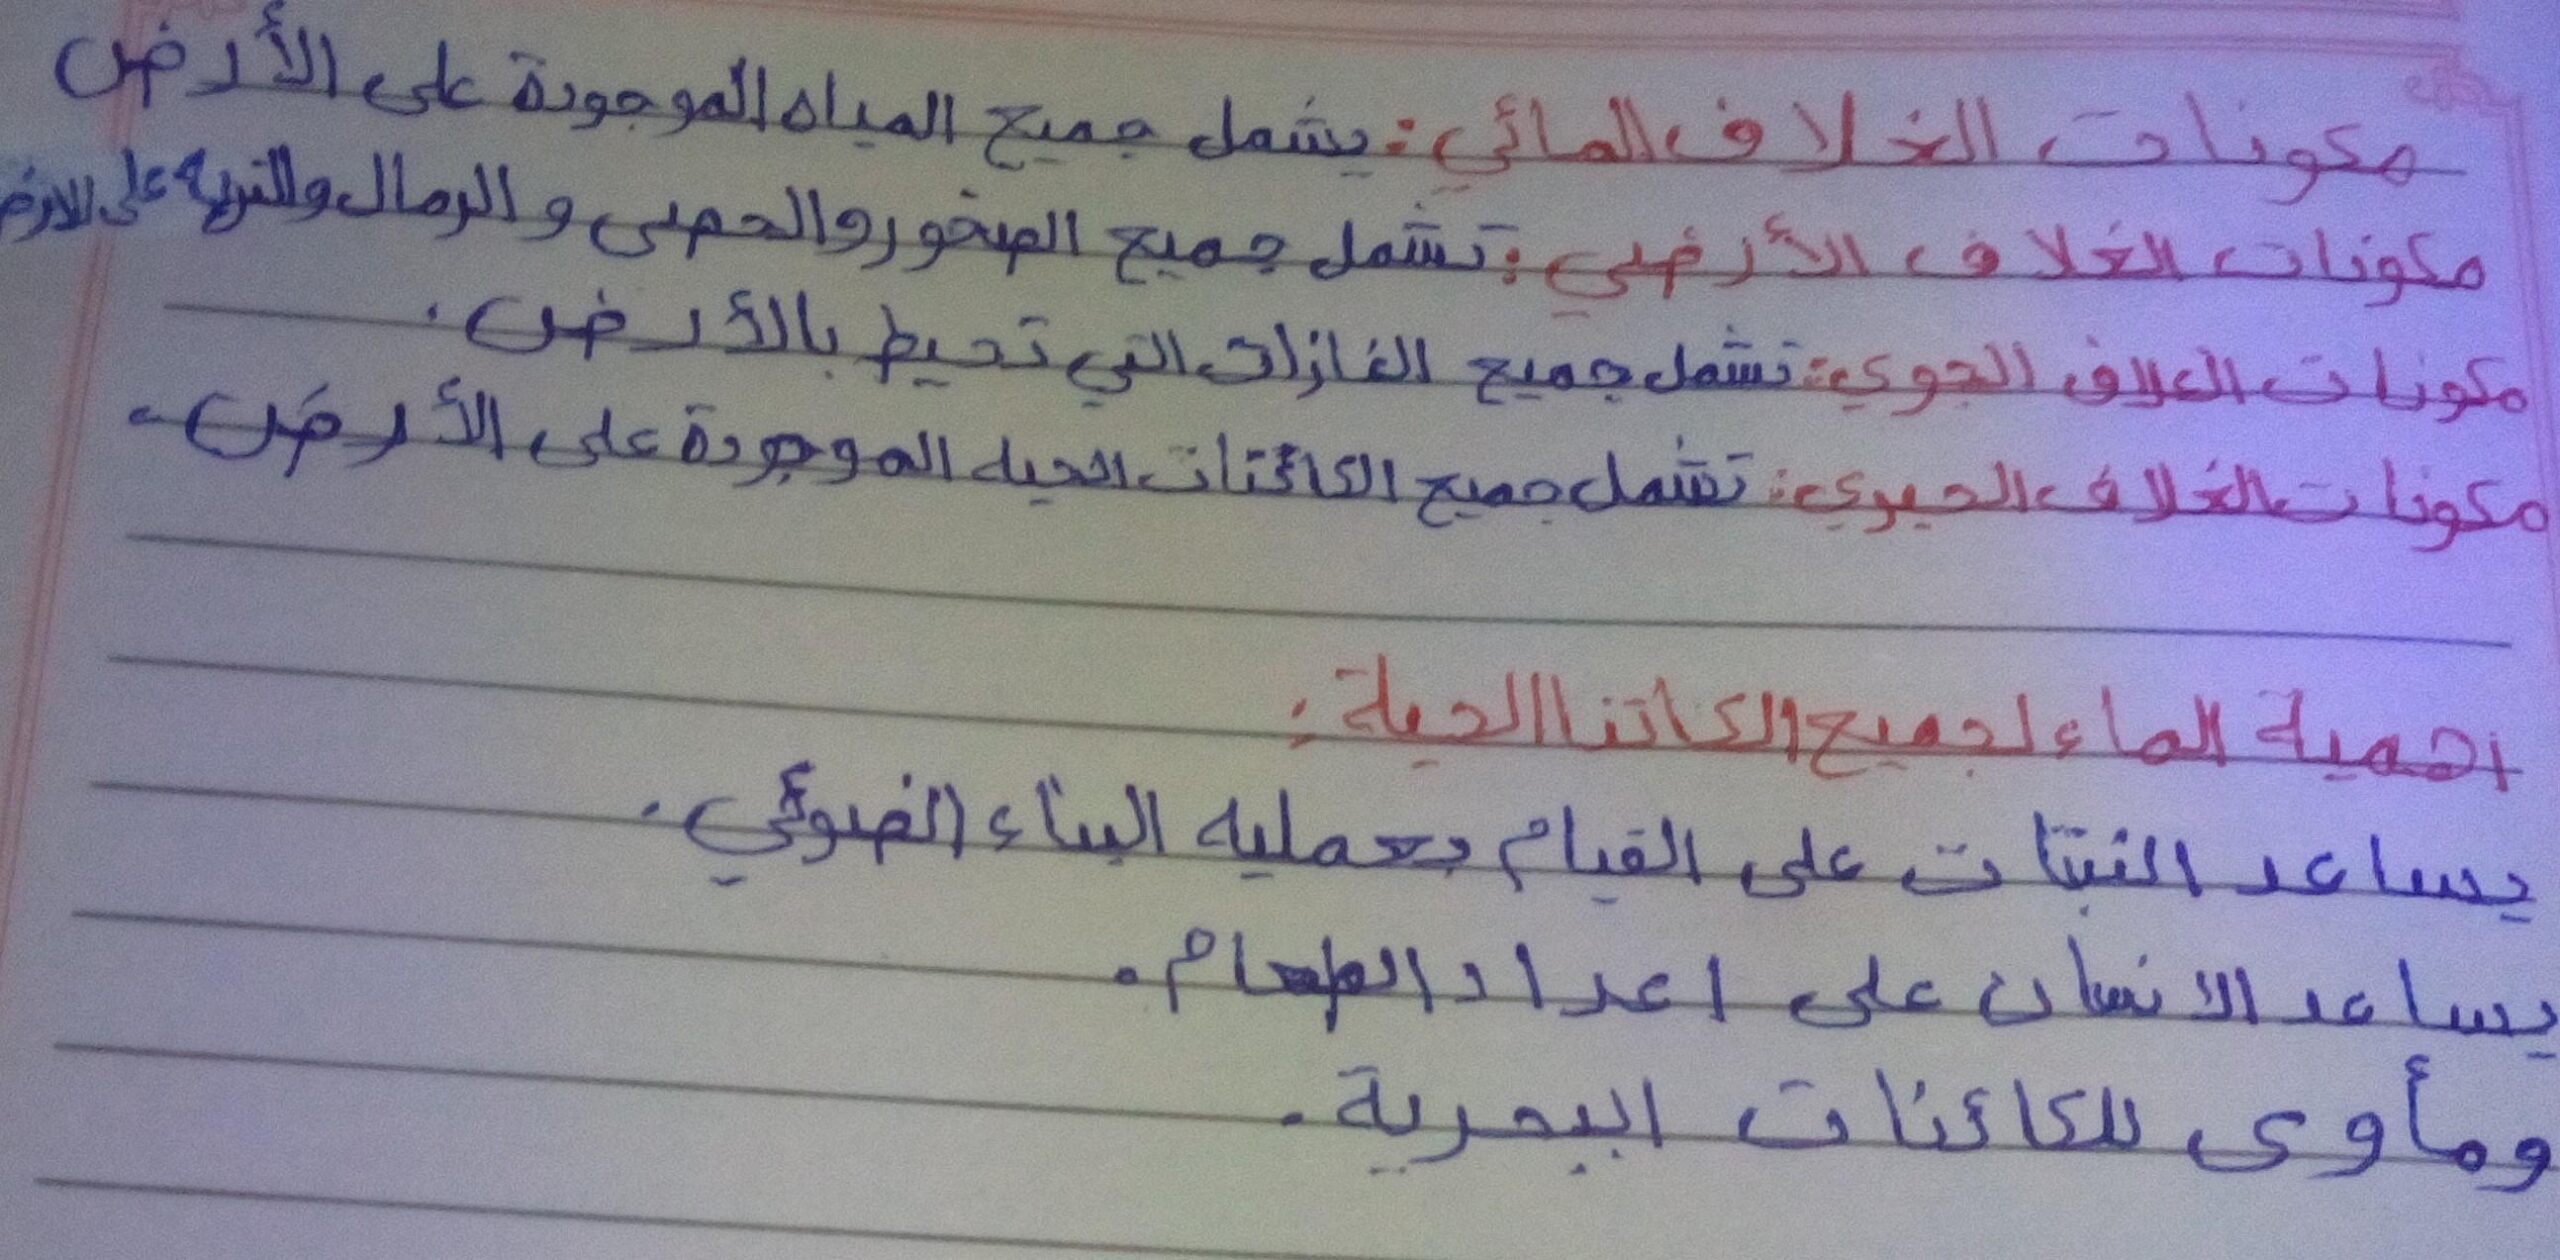 مكونات الغلاف المائي: يشمل جميع المياه الموجودة على الأرض
مكونات الغلاف الأرضي: تشمل جميع الصخور والحصى و الرمال والتربه على الارض
مكونات الغلاف الجوي: تشمل جميع الغازات التي تحيط بالأرض.
مكونات الغلاف الحيوي: تشمل جميع الكائنات الحيه الموجودة على الأرض.
اهمية الماء لجميع الكاتنا الحية:
يساعد النبتات على القيام بعمليه البناء الضوئي.
يساعد الانسان على اعداد الطعام.
ومأوى للكائنات البحرية.